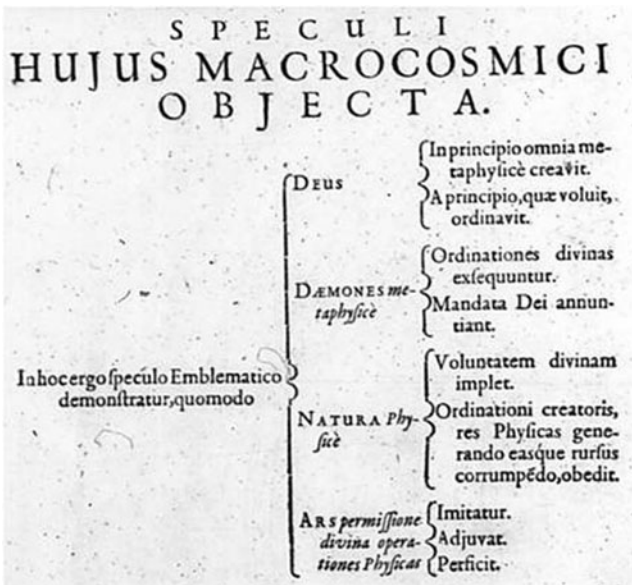 SPECULI
HUJUS MACROCOSMICI
OBJECTA.
In hoc ergo ſpeculo Emblematico
demonſtratur, quomodo
DEUS
In principio omnia me-
taphyſicè creavit.
A principio, quæ voluit,
ordinavit.
DÆMONES me-
taphyſicè
Ordinationes divinas
exſequuntur.
Mandata Dei annun-
tiant.
NATURA Phy-
ſicè
Voluntatem divinam
implet.
Ordinationi creatoris,
res Phyſicas gene-
rando easque rurſus
corrumpẽdo, obedit.
ARS permiſſione
divina opera-
tiones Phyſicas
Imitatur.
Adjuvat.
Perficit.